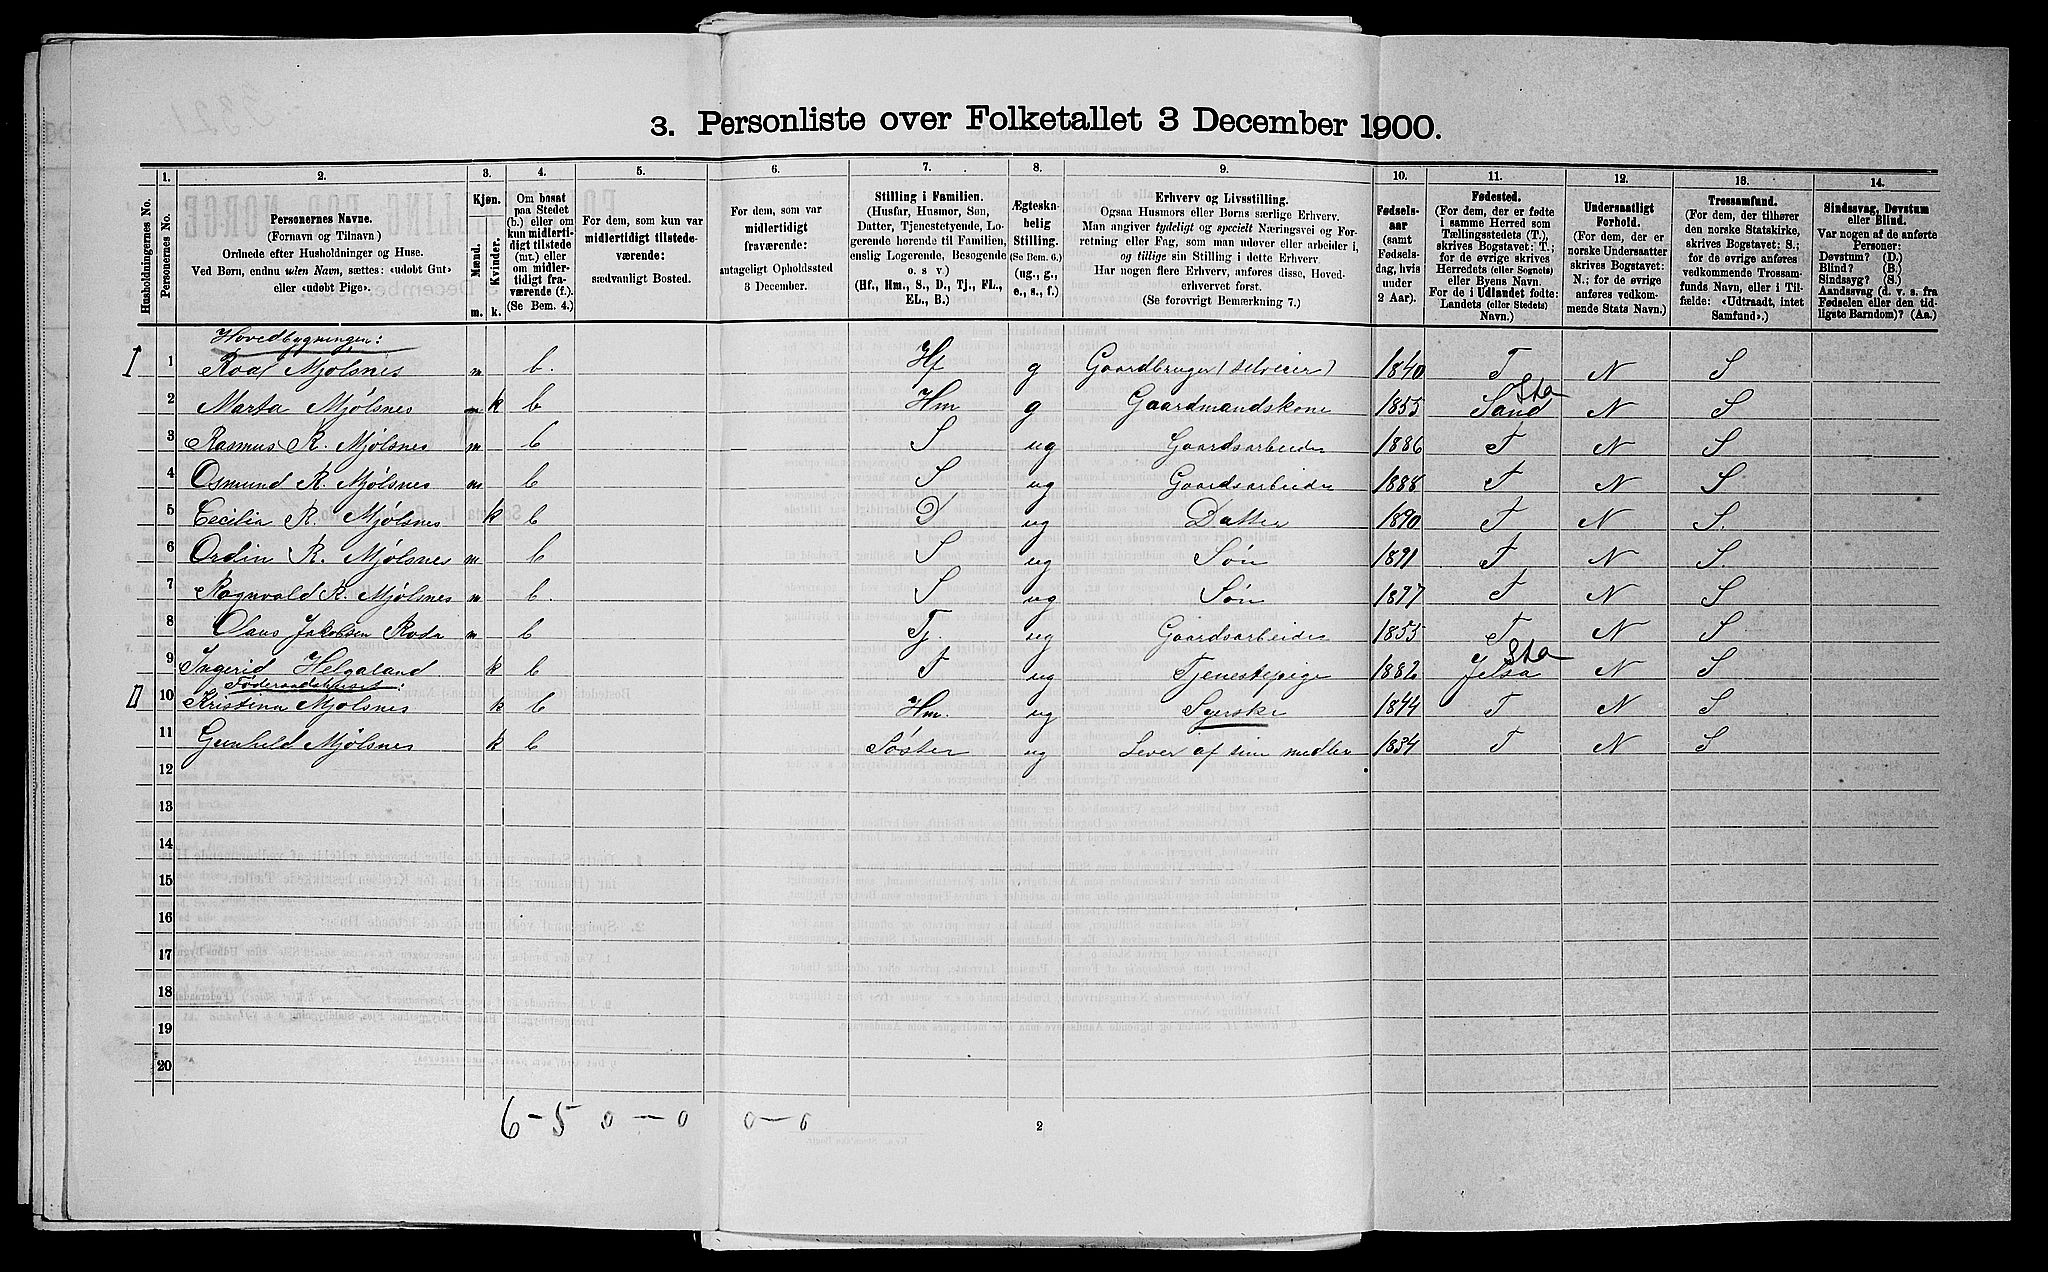 3. Personliste over Folketallet 3 December 1900.
1. 2. 3. 4. 5. 6. 7. 8. 9. 10. 11. 12. 13. 14.
Husholdningernes No.
Personernes No.
Personernes Navne.
(Fornavn og Tilnavn)
Ordnede efter Husholdninger og Huse.
Ved Børn, endnu uden Navn, sættes: «udøbt Gut»
eller «udøbt Pige».
Kjøn.
Mænd.
Kvinder.
m. k.
Om bosat
paa Stedet
(b.) eller om
kun midlerti-
digt tilstede
(mt.) eller
om midler-
tidigt fra-
værende (f.).
(Se Bem. 4.)
For dem, som kun var
midlertidigt tilstede-
værende:
sædvanligt Bosted.
For dem, som var
midlertidigt
fraværende:
antageligt Opholdssted
3 December.
Stilling i Familien.
(Husfar, Husmor, Søn,
Datter, Tjenestetyende, Lo-
gerende hørende til Familien,
enslig Logerende, Besøgende
o. s. v.)
(Hf., Hm., S., D., Tj., FL.,
EL., B.)
Ægteska-
belig
Stilling.
(Se Bem. 6.)
(ug., g.,
e., s., f.)
Erhverv og Livsstilling.
Ogsaa Husmors eller Børns særlige Erhverv.
Man angiver tydeligt og specielt Næringsvei og For-
retning eller Fag, som man udøver eller arbeider i,
og tillige sin Stilling i dette Erhverv.
Har nogen flere Erhverv, anføres disse, Hoved-
erhvervet først.
(Se forøvrigt Bemærkning 7.)
Fødsels-
aar
(samt
Fødsels-
dag, hvis
under
2 Aar).
Fødested.
(For dem, der er fødte
i samme Herred som
Tællingsstedets (T.),
skrives Bogstavet: T.;
for de øvrige skrives
Herredets (eller Sognets)
eller Byens Navn.
For de i Udlandet fødte:
Landets (eller Stedets)
Navn.)
Undersaatligt
Forhold.
(For dem, der er
norske Undersaatter
skrives Bogstavet:
N.; for de øvrige
anføres vedkom-
mende Stats Navn.)
Trossamfund.
(For dem, der tilhører
den norske Statskirke,
skrives Bogstavet: S.;
for de øvrige anføres
vedkommende Trossam-
funds Navn, eller i Til-
fælde: «Udtraadt, intet
Samfund».)
Sindssvag, Døvstum
eller Blind.
Var nogen af de anførte
Personer:
Døvstum? (D.)
Blind? (B.)
Sindssyg? (S.)
Aandssvag (d. v. s. fra
Fødselen eller den tid-
ligste Barndom)? (Aa.)
Hovedbygningen:
I 1 Roal Mjølsnes m b. Hf g Gaardbruger (selveier) 1840 T N S
2 Marta Mjølsnes k b Hm g Gaardmandskone 1855 Sand Sta N S
3 Rasmus R. Mjølsnes m b S ug Gaardsarbeider 1886 T N S
4 Osmund R. Mjølsnes m b S ug Gaardsarbeider 1888 T N S
5 Cecilia R. Mjølsnes k b D ug Datter 1890 T N S.
6 Ordin R. Mjølsnes m b S ug Søn 1891 T N S.
7 Ragnvald R. Mjølsnes m b. S ug Søn 1897 T N S
8 Olaus Jakobsen Roda m b Tj. ug Gaardsarbeider 1855 T N S
9 Ingerid Helgaland k b T ug Tjenestepige 1882 Jelsa Sta N S
Føderaadshuset:
II 10 Kristina Mjølsnes k b Hm. ug Syerske 1844 T N S
11 Gunhild Mjølsnes k b Søster ug Lever af sine midler 1834 T N S
12
13
14
15
16
17
18
19
20
6-5 0-0 0-0
2